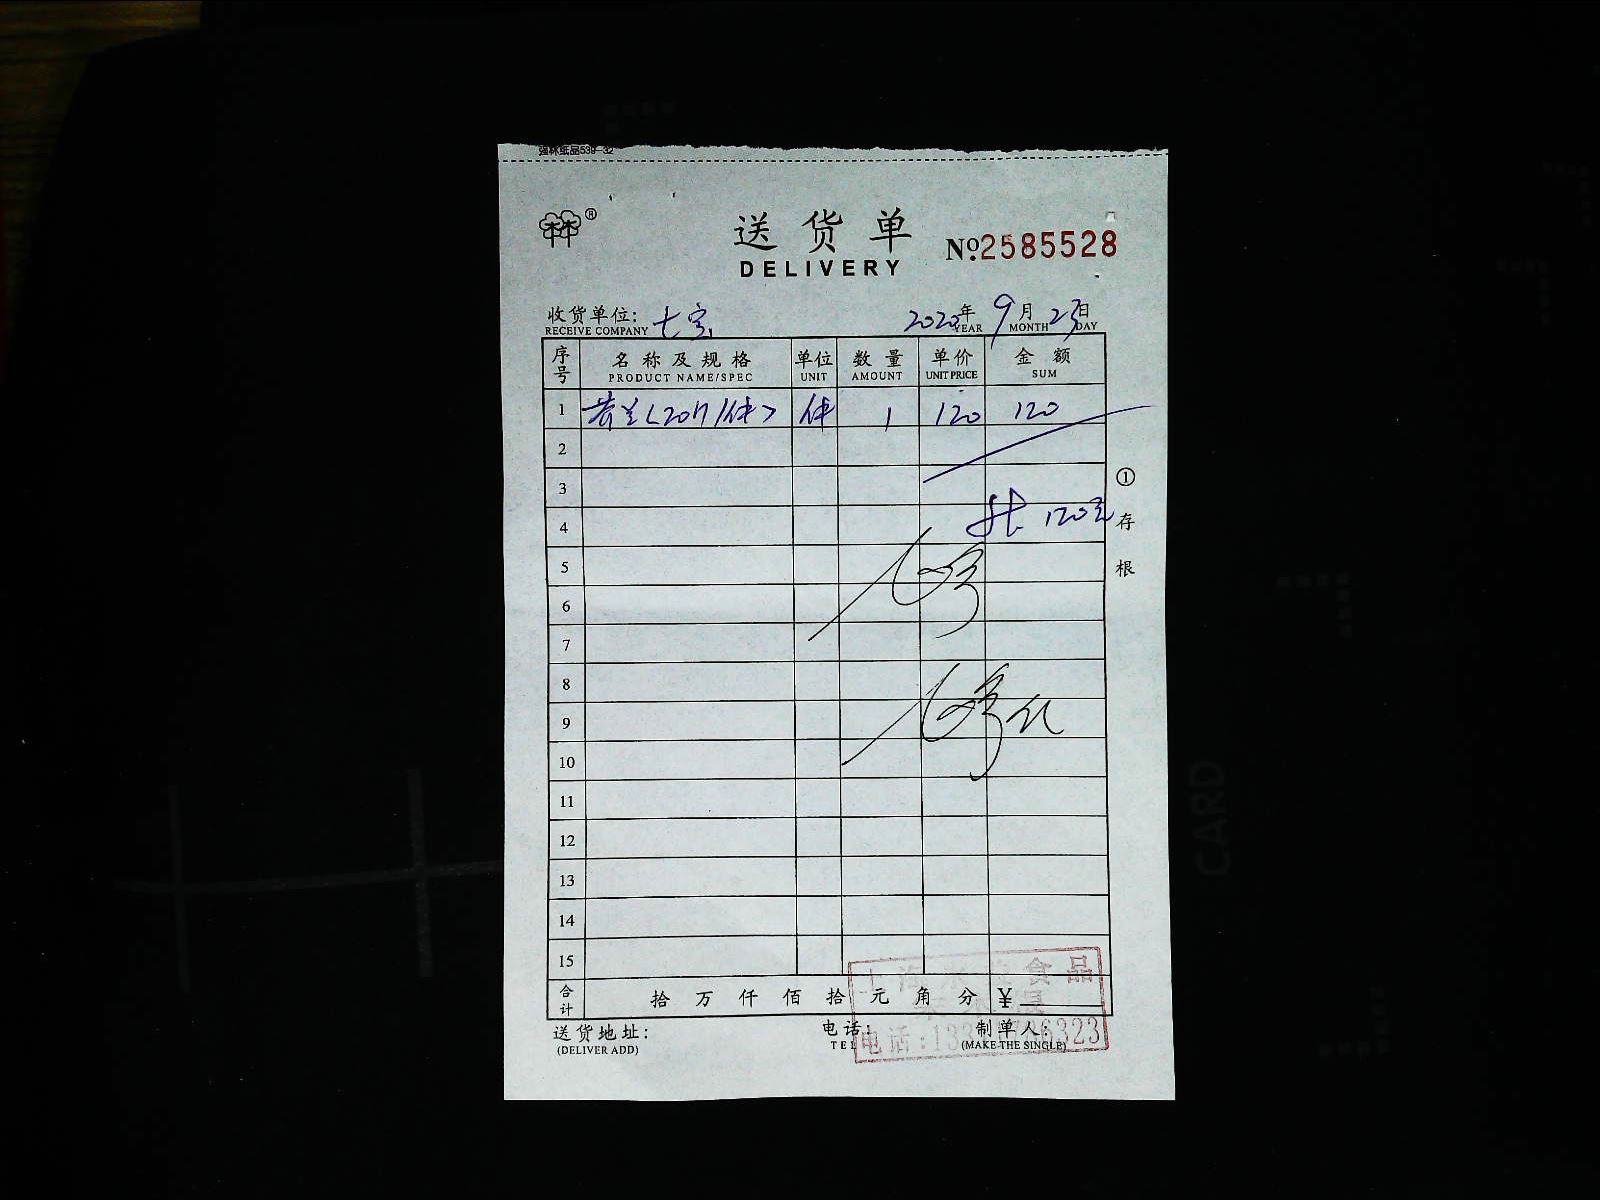 送货单
DELIVERY
№2585528
收货单位: 七宝
RECEIVE COMPANY
2020年9月23日
YEAR MONTH DAY
序号 名称及规格 单位 数量 单价 金额
PRODUCT NAME/SPEC UNIT AMOUNT UNIT PRICE SUM
1 件 1 120 120
2
3
4 共 120元
5
6
7
8
9
10
11
12
13
14
15
①存根
合计 拾万仟佰拾元角分 ¥
送货地址: 电话: 制单人:
(DELIVER ADD) TEL (MAKE THE SINGLE)
上海 食品
电话:
CARD